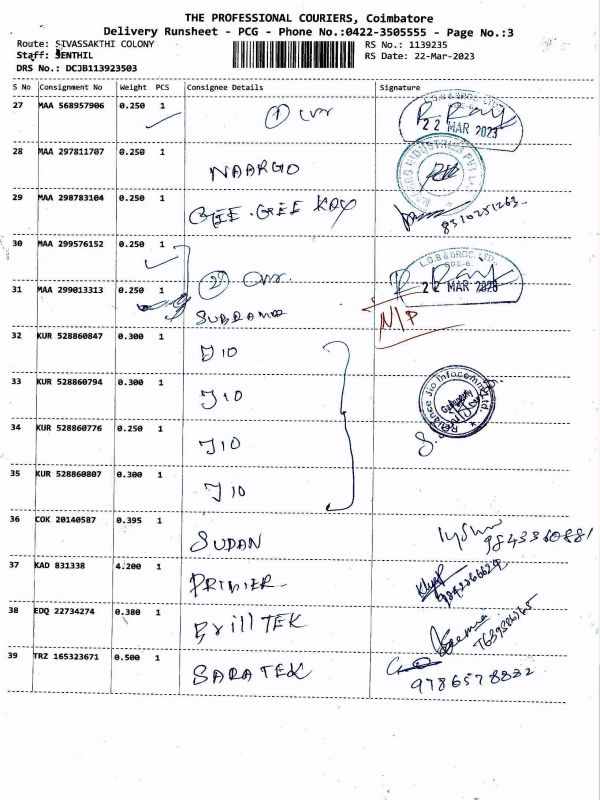 THE PROFESSIONAL COURIERS, Coimbatore
Delivery Runsheet - PCG - Phone No.:0422-3505555 - Page No.:3
Route: SIVASSAKTHI COLONY
RS No.: 1139235
Staff: SENTHIL
RS Date: 22-Mar-2023
DRS No.: DCJB113923503
S No Consignment No Weight PCS Consignee Details Signature
27 MAA 568957906 0.250 1
L.G.B & BROS. LTD.
22 MAR 2023
28 MAA 297811707 0.250 1
NAARGO
29 MAA 298783104 0.250 1
GEE.GEE KAY
8310251263
30 MAA 299576152 0.250 1
L.G.B & BROS. LTD.
22 MAR 2023
31 MAA 299013313 0.250 1
N/P
32 KUR 528860847 0.300 1
JIO
33 KUR 528860794 0.300 1
JIO
Reliance Jio Infocomm Ltd.
34 KUR 528860776 0.250 1
JIO
35 KUR 528860807 0.300 1
JIO
36 COK 20140587 0.395 1
SUDAN
9843360881
37 KAD 831338 4.200 1
PRIMIER
38 EDQ 22734274 0.380 1
BrillTEK
39 TRZ 165323671 0.500 1
SARATEK
9786578832